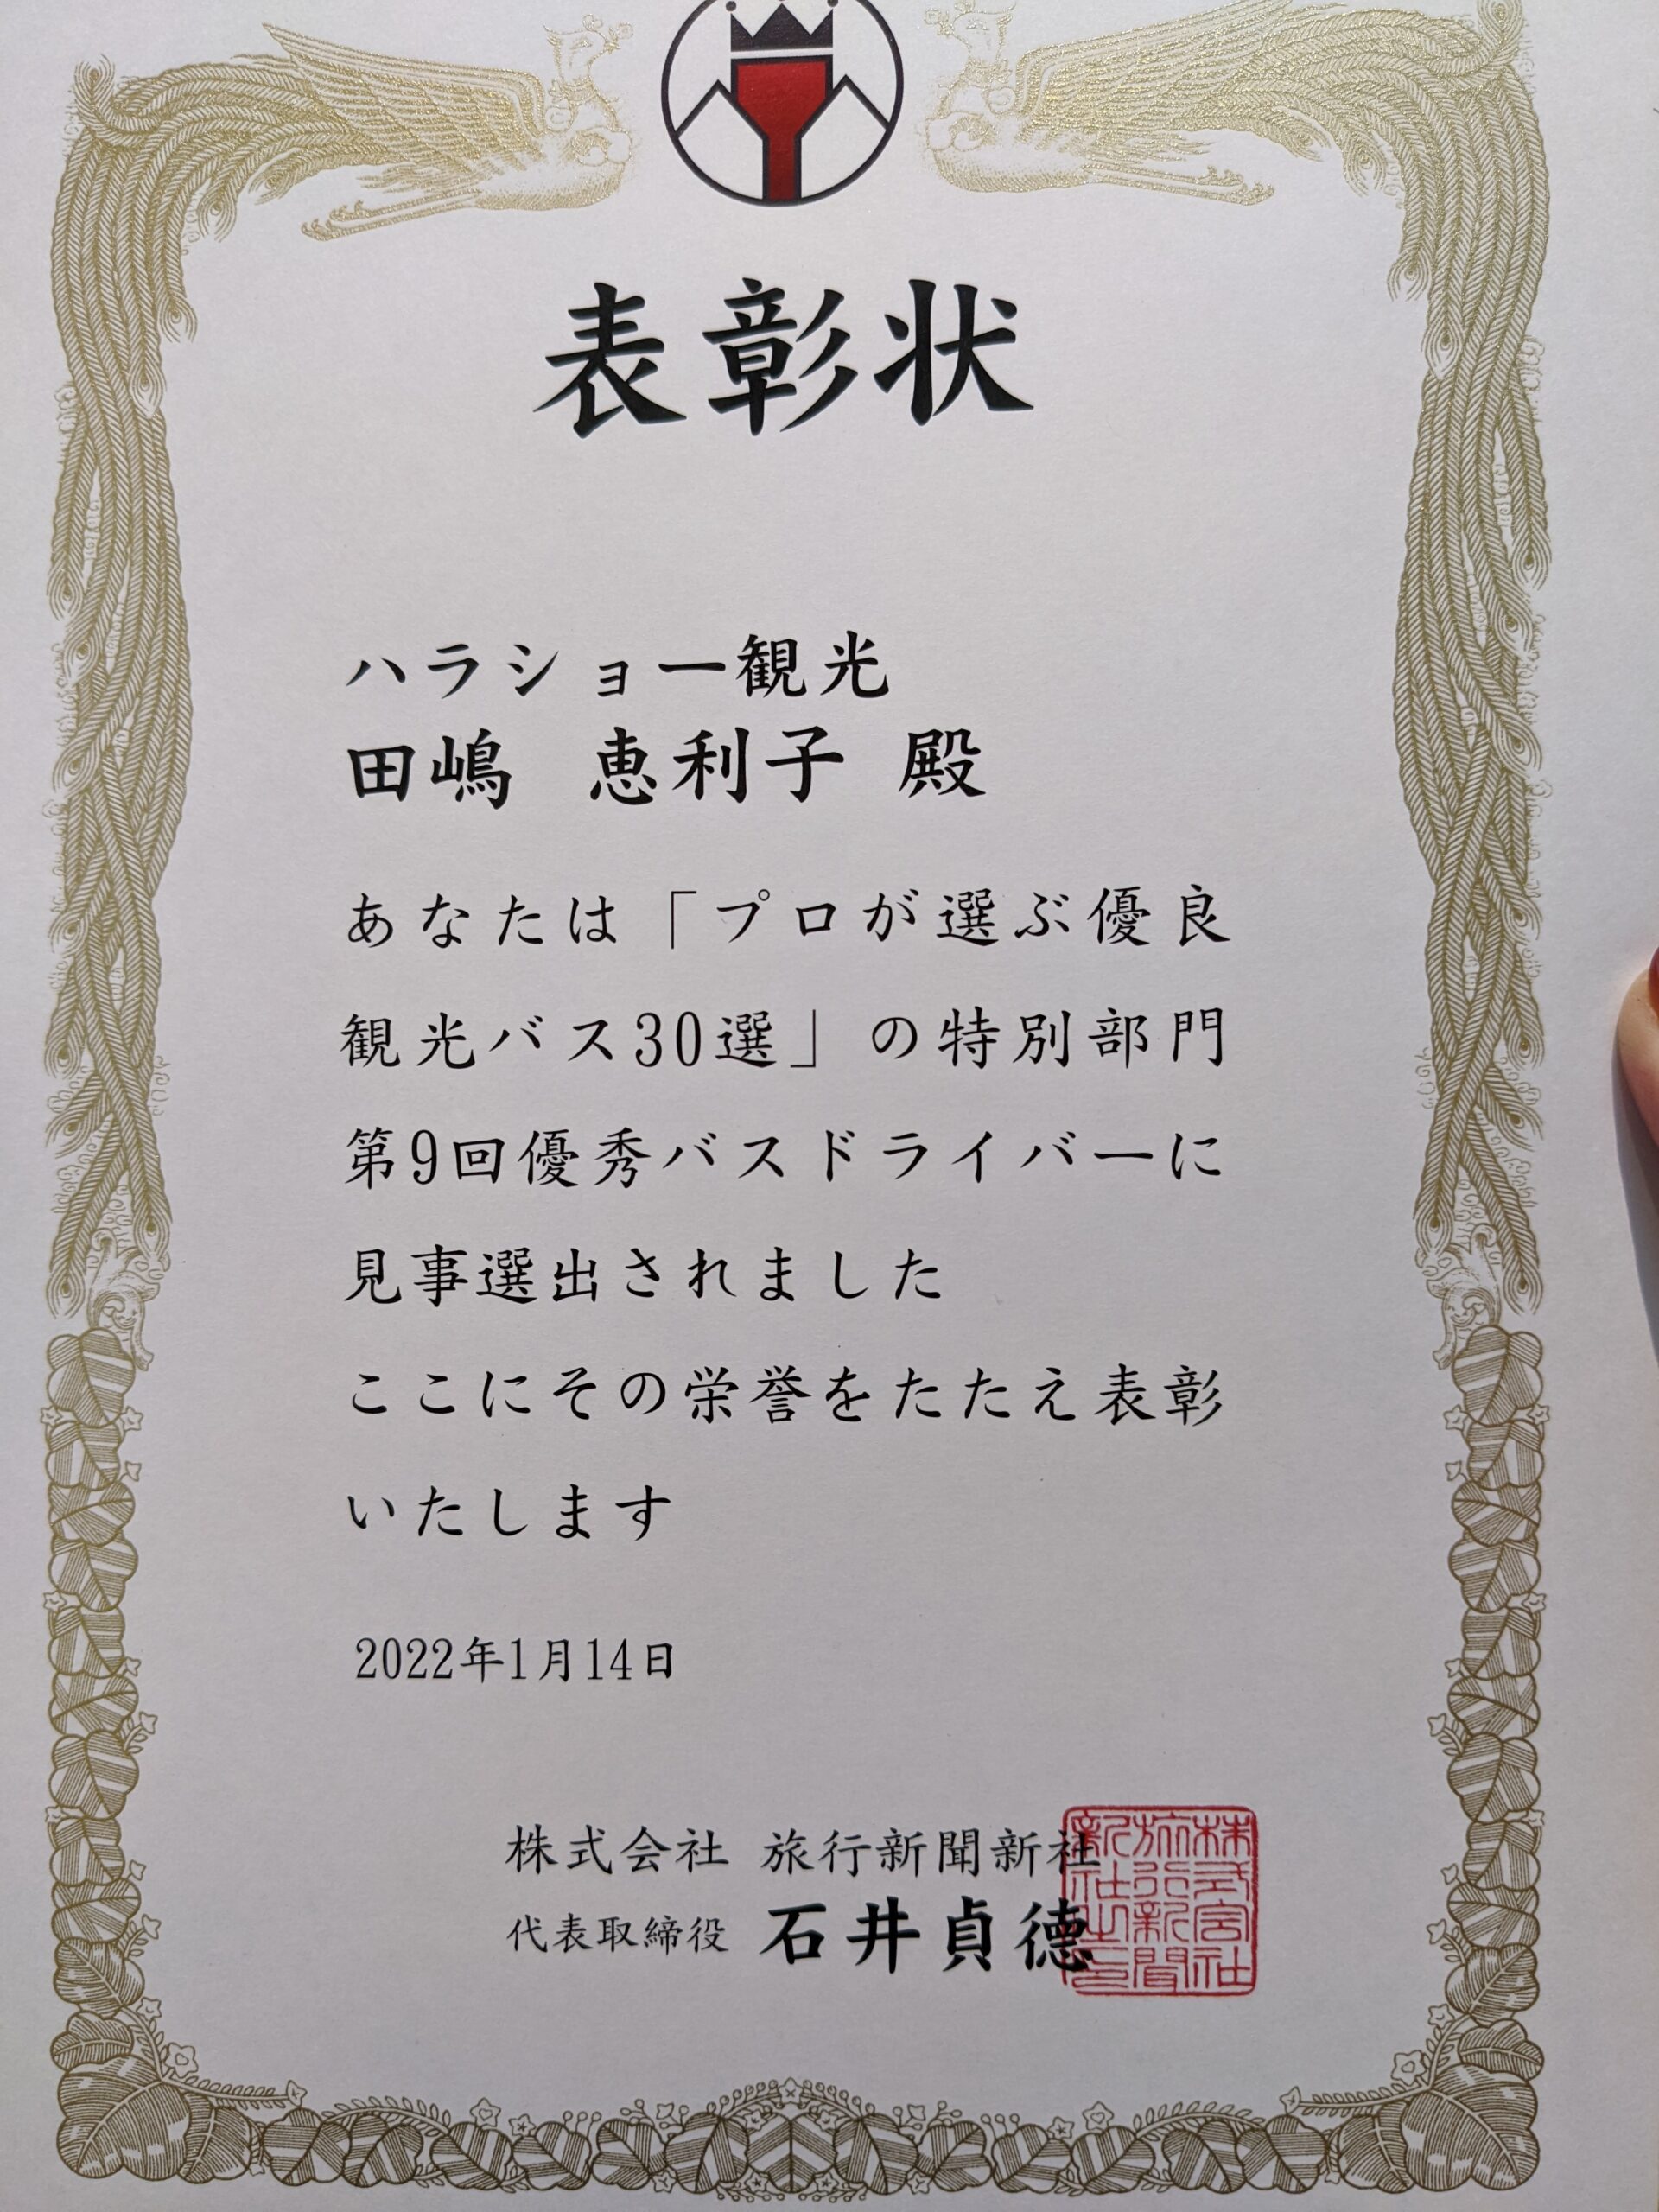 表彰状
ハラショー観光
田嶋 恵利子 殿
あなたは「プロが選ぶ優良
観光バス30選」の特別部門
第9回優秀バスドライバーに
見事選出されました
ここにその栄誉をたたえ表彰
いたします
2022年1月14日
株式会社 旅行新聞新社
代表取締役 石井貞德
株式会社
旅行新聞
新社之印